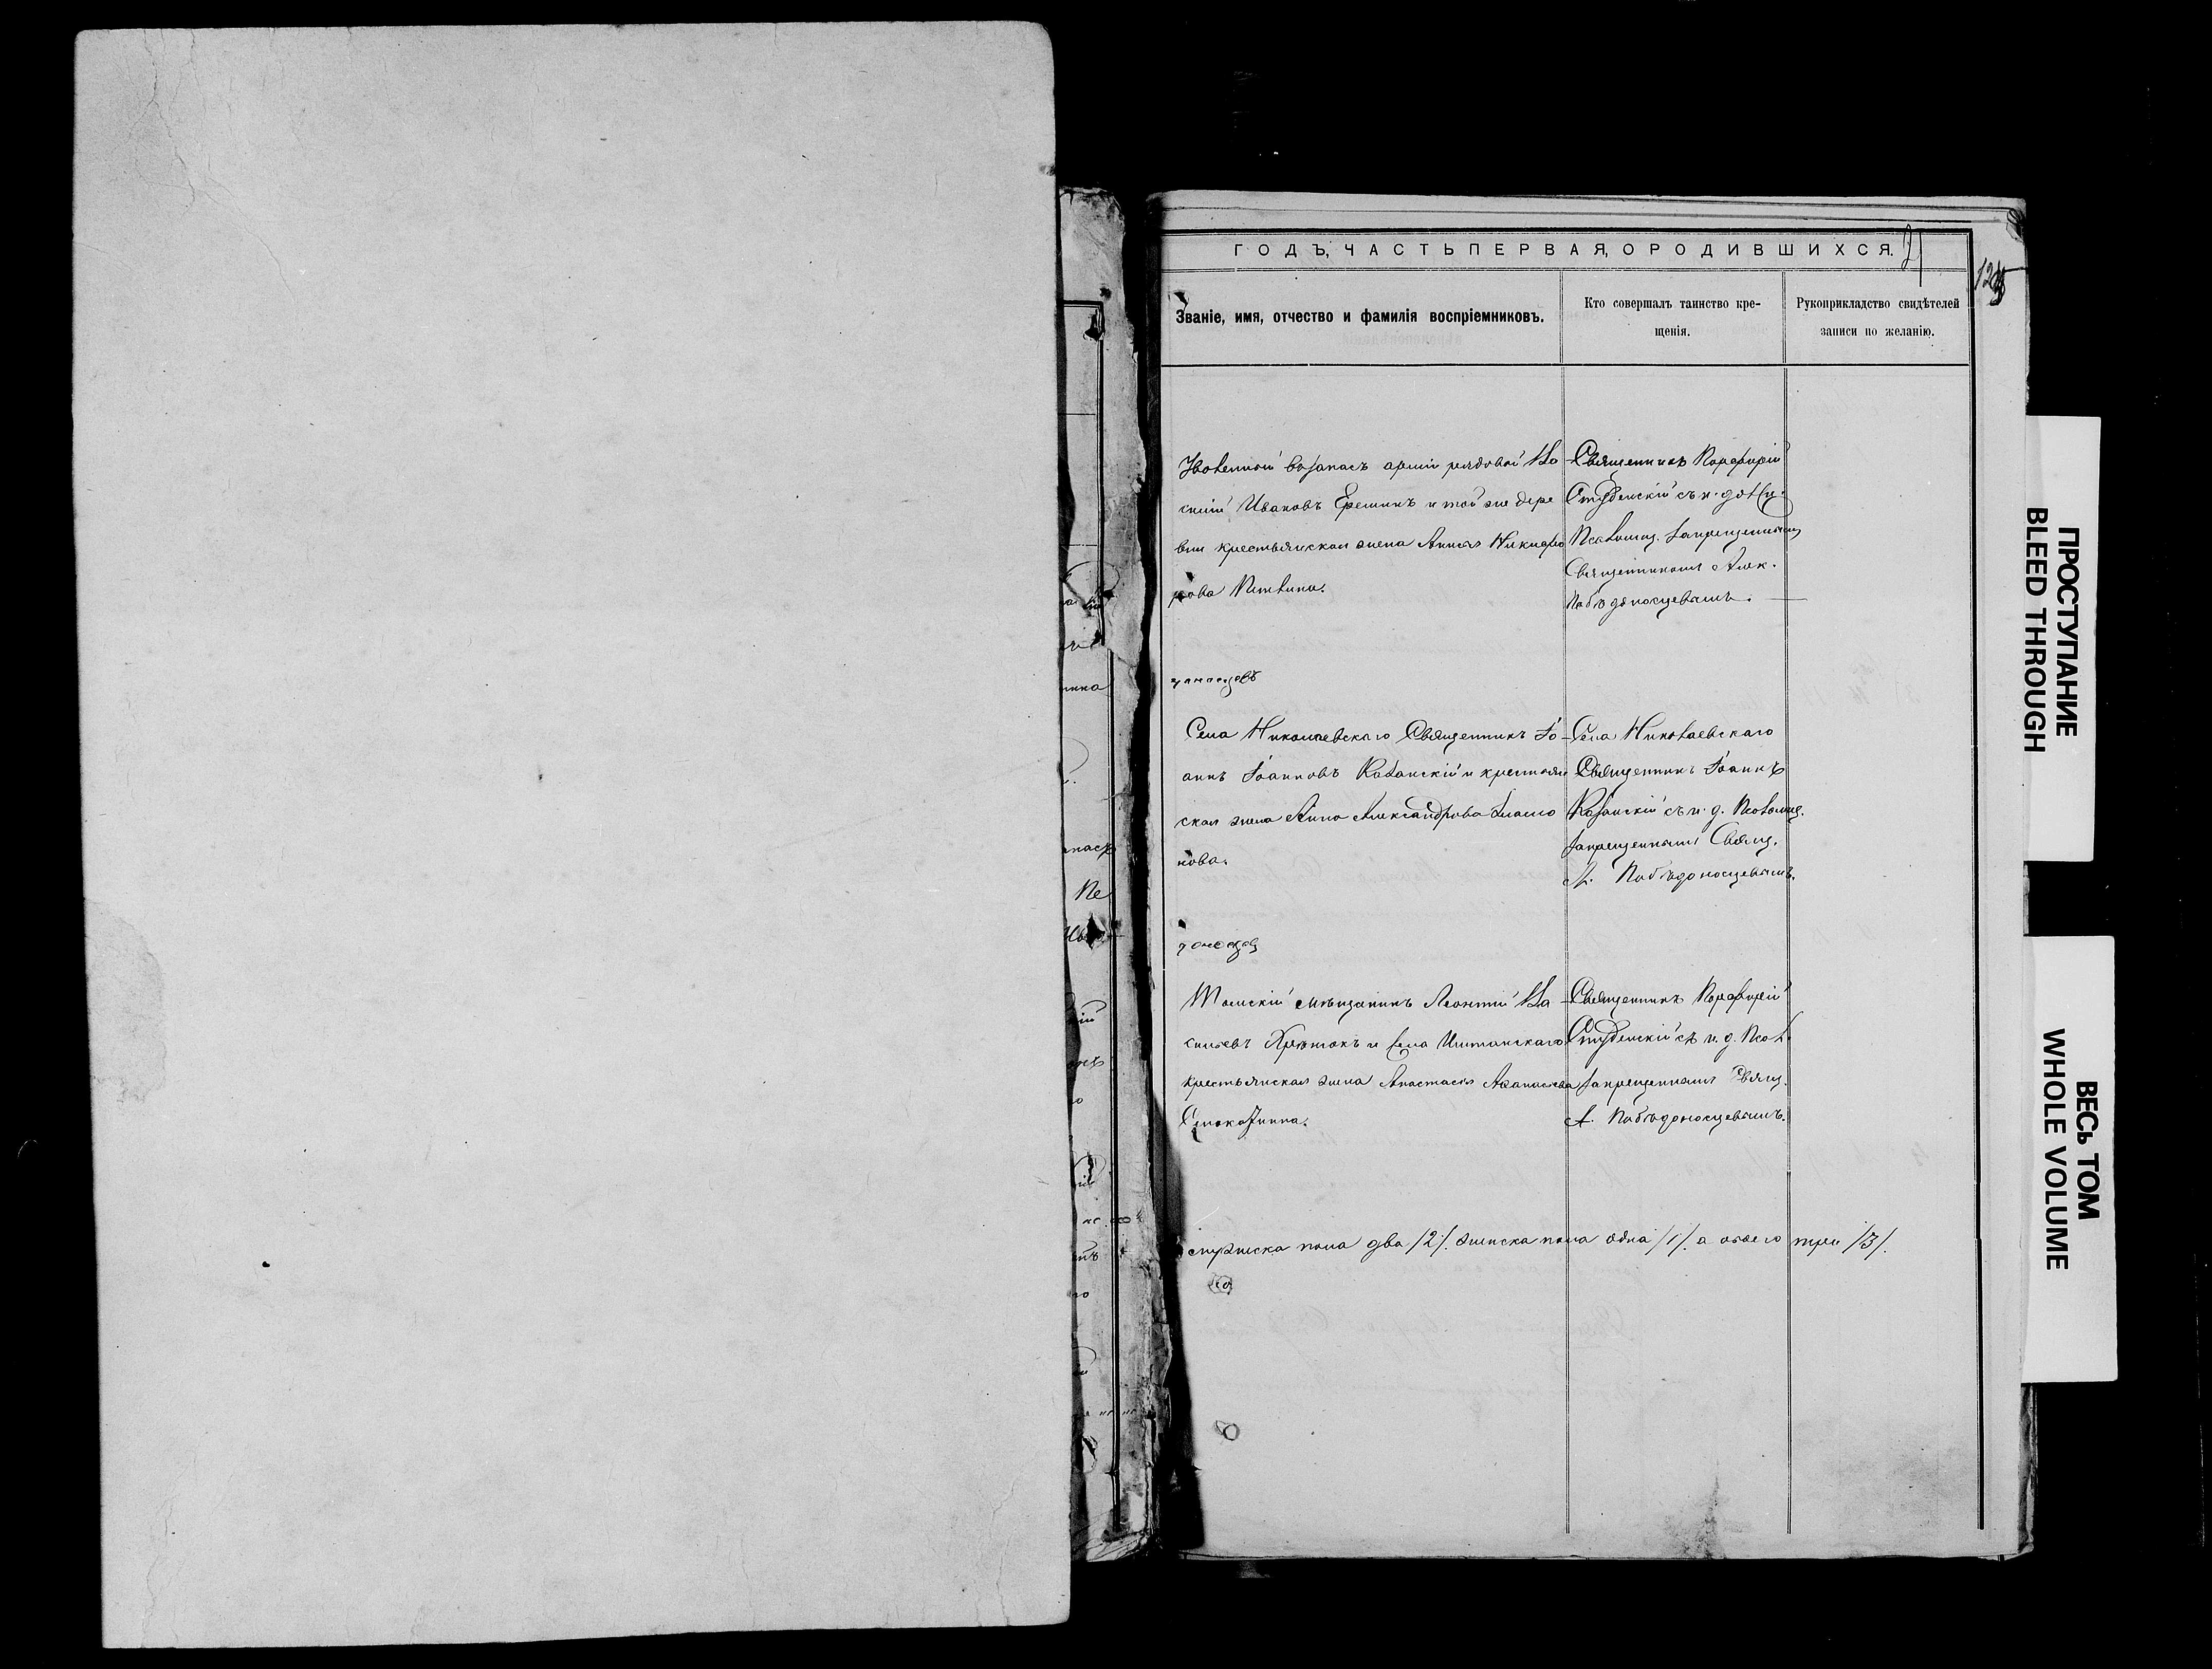 ГОДЪ, ЧАСТЬ ПЕРВАЯ, О РОДИВШИХСЯ.
21
Званіе, имя, отчество и фамилія воспріемниковъ.
Кто совершалъ таинство кре-
щенія.
Рукоприкладство свидѣтелей
записи по желанію.
Уволенный въ запасъ арміи рядовой Ва
силій Ивановъ Еремин и той же дере
вни крестьянская жена Анна Никифо
рова
Священникъ Порфирій
Студенскій съ и. д.
Псаломщ. запрещеннымъ
Священникомъ Алек.
Побѣдоносцевымъ.
Села Николаевскаго Священникъ Іо-
аннъ Іоанновъ Казанскій и крестьян
ская жена Анна Александрова
нова.
Села Николаевскаго
Священникъ Іоаннъ
Казанскій съ и. д. Псаломщ.
запрещеннымъ Свящ.
А. Побѣдоносцевымъ.
Томскій мѣщанинъ Леонтій Ва
сильевъ и села Иштанскаго
крестьянская жена Анастасія Афанасьева
Священникъ Порфирій
Студенскій съ и. д. Псал.
запрещеннымъ Свящ.
А. Побѣдоносцевымъ.
мужеска пола два /2/. женска пола одна /1/. а обоего три /3/.
ПРОСТУПАНИЕ
BLEED THROUGH
ВЕСЬ ТОМ
WHOLE VOLUME